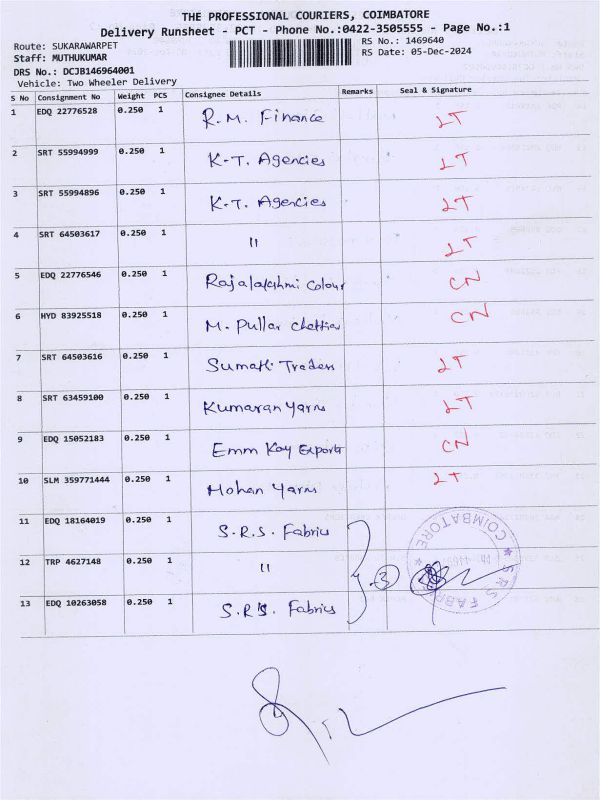 THE PROFESSIONAL COURIERS, COIMBATORE
Delivery Runsheet - PCT - Phone No.:0422-3505555 - Page No.:1
Route: SUKARAWARPET RS No.: 1469640
Staff: MUTHUKUMAR RS Date: 05-Dec-2024
DRS No.: DCJB146964001
Vehicle: Two Wheeler Delivery
S No Consignment No Weight PCS Consignee Details Remarks Seal & Signature
1 EDQ 22776528 0.250 1 R.M. Finance LT
2 SRT 55994999 0.250 1 K.T. Agencies LT
3 SRT 55994896 0.250 1 K.T. Agencies LT
4 SRT 64503617 0.250 1 " LT
5 EDQ 22776546 0.250 1 Rajalakshmi Colour CN
6 HYD 83925518 0.250 1 M. Pullar Chettiar CN
7 SRT 64503616 0.250 1 Sumathi Traders LT
8 SRT 63459100 0.250 1 Kumaran Yarns LT
9 EDQ 15052183 0.250 1 Emm Kay Exports CN
10 SLM 359771444 0.250 1 Mohan Yarns LT
11 EDQ 18164019 0.250 1 S.R.S. Fabrics
12 TRP 4627148 0.250 1 " 3
13 EDQ 10263058 0.250 1 S.R.S. Fabrics
S.R.S FABRI
COIMBATORE